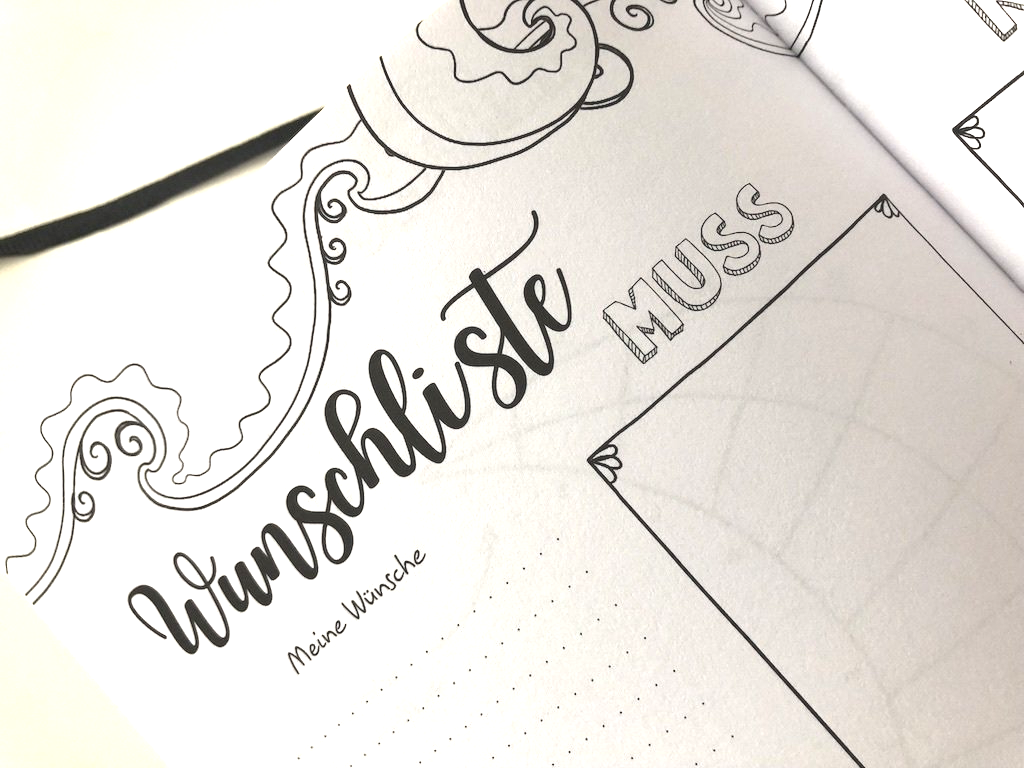 Wunschliste
Meine Wünsche
MUSS